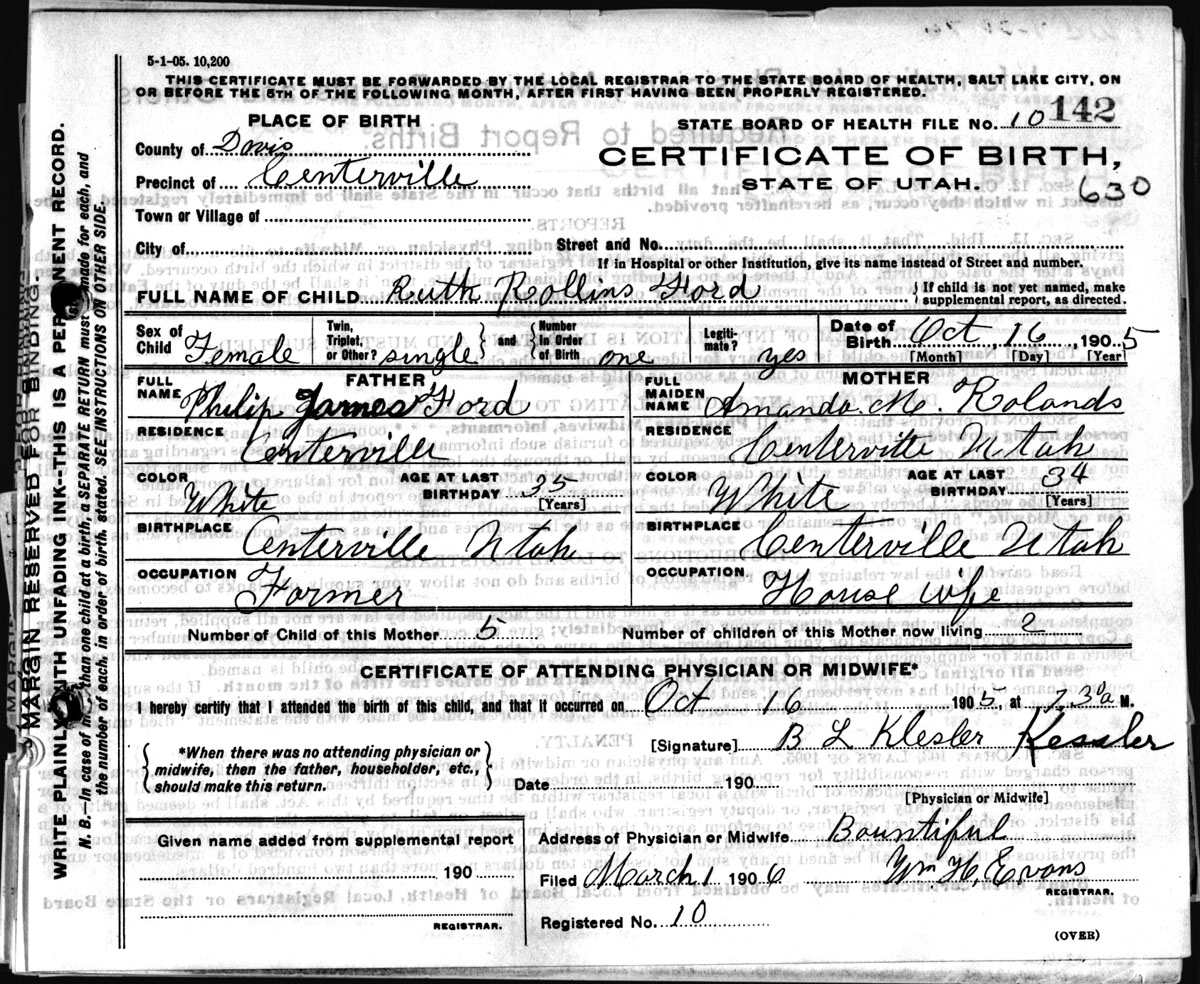 5-1-05. 10,200
THIS CERTIFICATE MUST BE FORWARDED BY THE LOCAL REGISTRAR TO THE STATE BOARD OF HEALTH, SALT LAKE CITY, ON
OR BEFORE THE 5TH OF THE FOLLOWING MONTH, AFTER FIRST HAVING BEEN PROPERLY REGISTERED.
PLACE OF BIRTH
STATE BOARD OF HEALTH FILE No. 10 142
County of Davis
CERTIFICATE OF BIRTH,
Precinct of Centerville
STATE OF UTAH. 630
Town or Village of
City of Street and No.
If in Hospital or other Institution, give its name instead of Street and number.
FULL NAME OF CHILD Ruth Rollins Ford { If child is not yet named, make supplemental report, as directed.
Sex of Child Female Twin, Triplet, or Other? single } and { Number in Order of Birth one Legiti-mate? yes Date of Birth Oct 16, 1905
[Month] [Day] [Year]
FATHER MOTHER
FULL NAME Philip James Ford FULL MAIDEN NAME Amanda M. Rolands
RESIDENCE Centerville RESIDENCE Centerville Utah
COLOR White AGE AT LAST BIRTHDAY 35 [Years] COLOR White AGE AT LAST BIRTHDAY 34 [Years]
BIRTHPLACE Centerville Utah BIRTHPLACE Centerville Utah
OCCUPATION Farmer OCCUPATION House wife
Number of Child of this Mother 5 Number of children of this Mother now living 2
CERTIFICATE OF ATTENDING PHYSICIAN OR MIDWIFE*
I hereby certify that I attended the birth of this child, and that it occurred on Oct 16 1905, at 7.30 a M.
{ *When there was no attending physician or midwife, then the father, householder, etc., should make this return. }
[Signature] B L Klesler Kessler
Date 190
[Physician or Midwife]
Given name added from supplemental report
190
REGISTRAR.
Address of Physician or Midwife Bountiful
Filed March 1 1906 Wm H. Evans
REGISTRAR.
Registered No. 10
(OVER)
MARGIN RESERVED FOR BINDING.
WRITE PLAINLY WITH UNFADING INK--THIS IS A PERMANENT RECORD.
N. B.--In case of more than one child at a birth, a SEPARATE RETURN must be made for each, and
the number of each, in order of birth, stated. SEE INSTRUCTIONS ON OTHER SIDE.